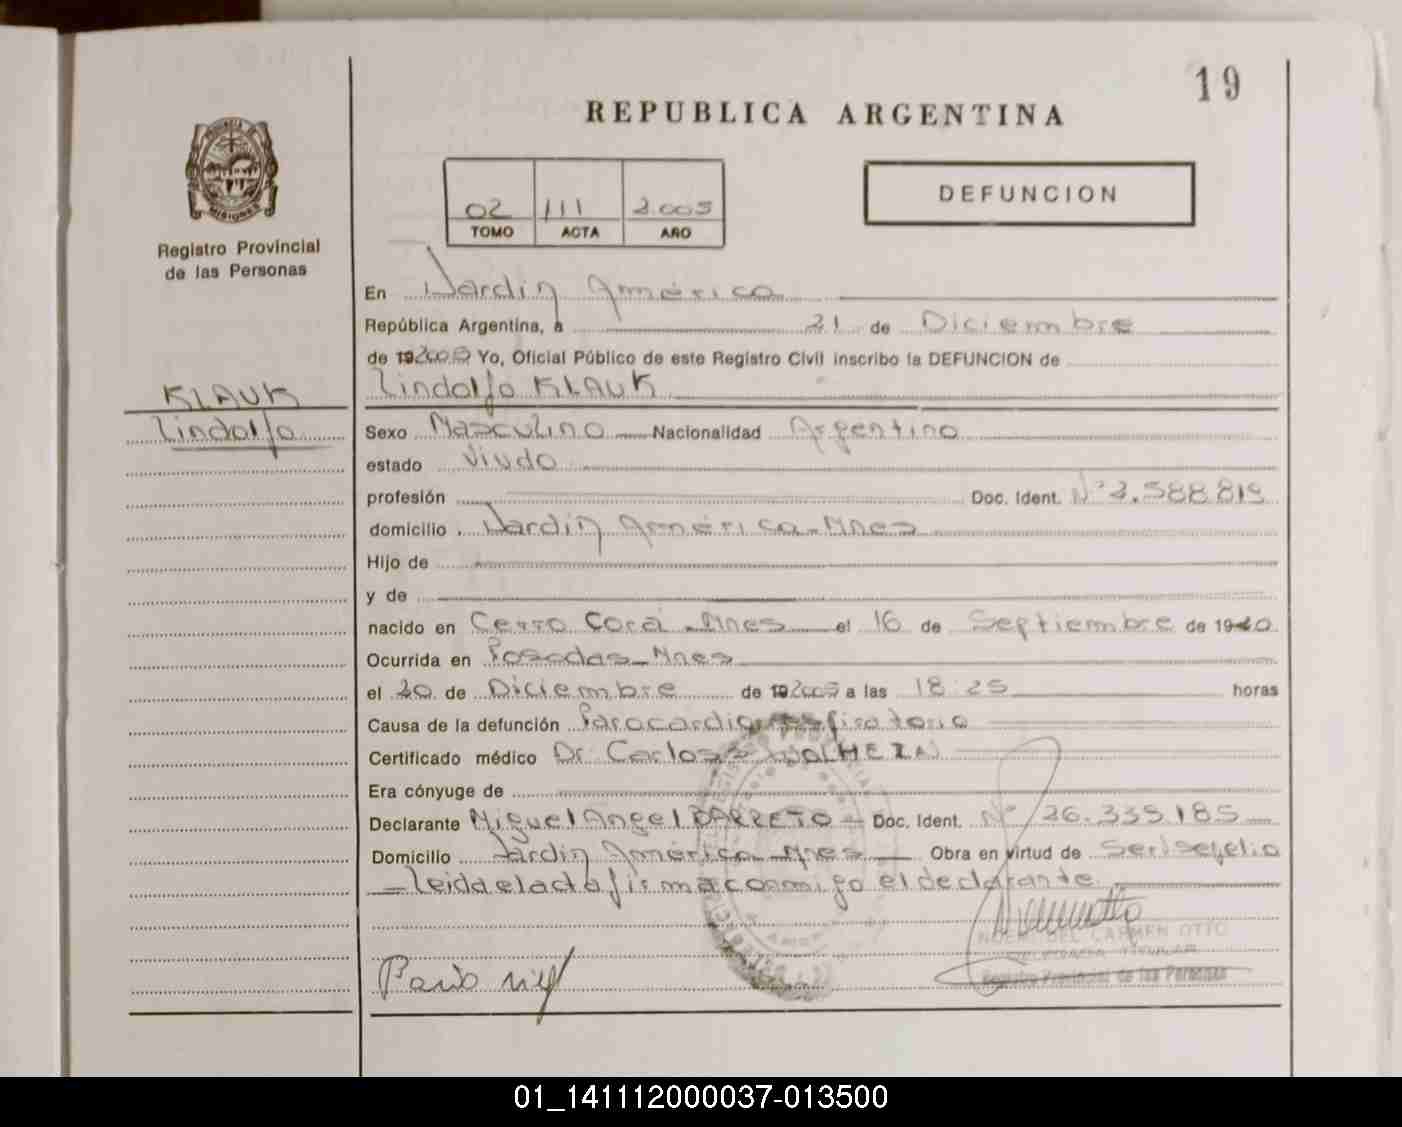 19
REPUBLICA ARGENTINA
PROVINCIA DE
MISIONES
Registro Provincial
de las Personas
02 111 2.005
TOMO ACTA AÑO
DEFUNCION
En Jardín América
República Argentina, a 21 de Diciembre
de 192005 Yo, Oficial Público de este Registro Civil inscribo la DEFUNCION de
KLAUK
Lindolfo
Lindolfo KLAUK
Sexo Masculino Nacionalidad Argentino
estado Viudo
profesión Doc. Ident. Nº 7.588.819
domicilio Jardín América-Mnes
Hijo de
y de
nacido en Cerro Corá-Mnes el 16 de Septiembre de 1940
Ocurrida en Posadas-Mnes
el 20 de Diciembre de 192005 a las 18:25 horas
Causa de la defunción Parocardiorespiratorio
Certificado médico Dr. Carlos
Era cónyuge de
Declarante Miguel Angel BARRETO - Doc. Ident. Nº 26.335.185
Domicilio Jardín América-Mnes Obra en virtud de Serlsepelio
-leida el acta firma conmigo el declarante
DEL CARMEN OTTO
TITULAR
Registro Provincial de las Personas
01_141112000037-013500